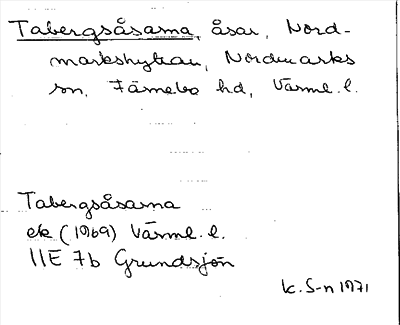 Tabergsåsarna, åsar, Nord-
markshyttan, Nordmarks
sn, Färnebo hd, Värml. l.
Tabergsåsarna
ek (1969) Värml. l.
11E 7b Grundsjön
K. S-n 1971